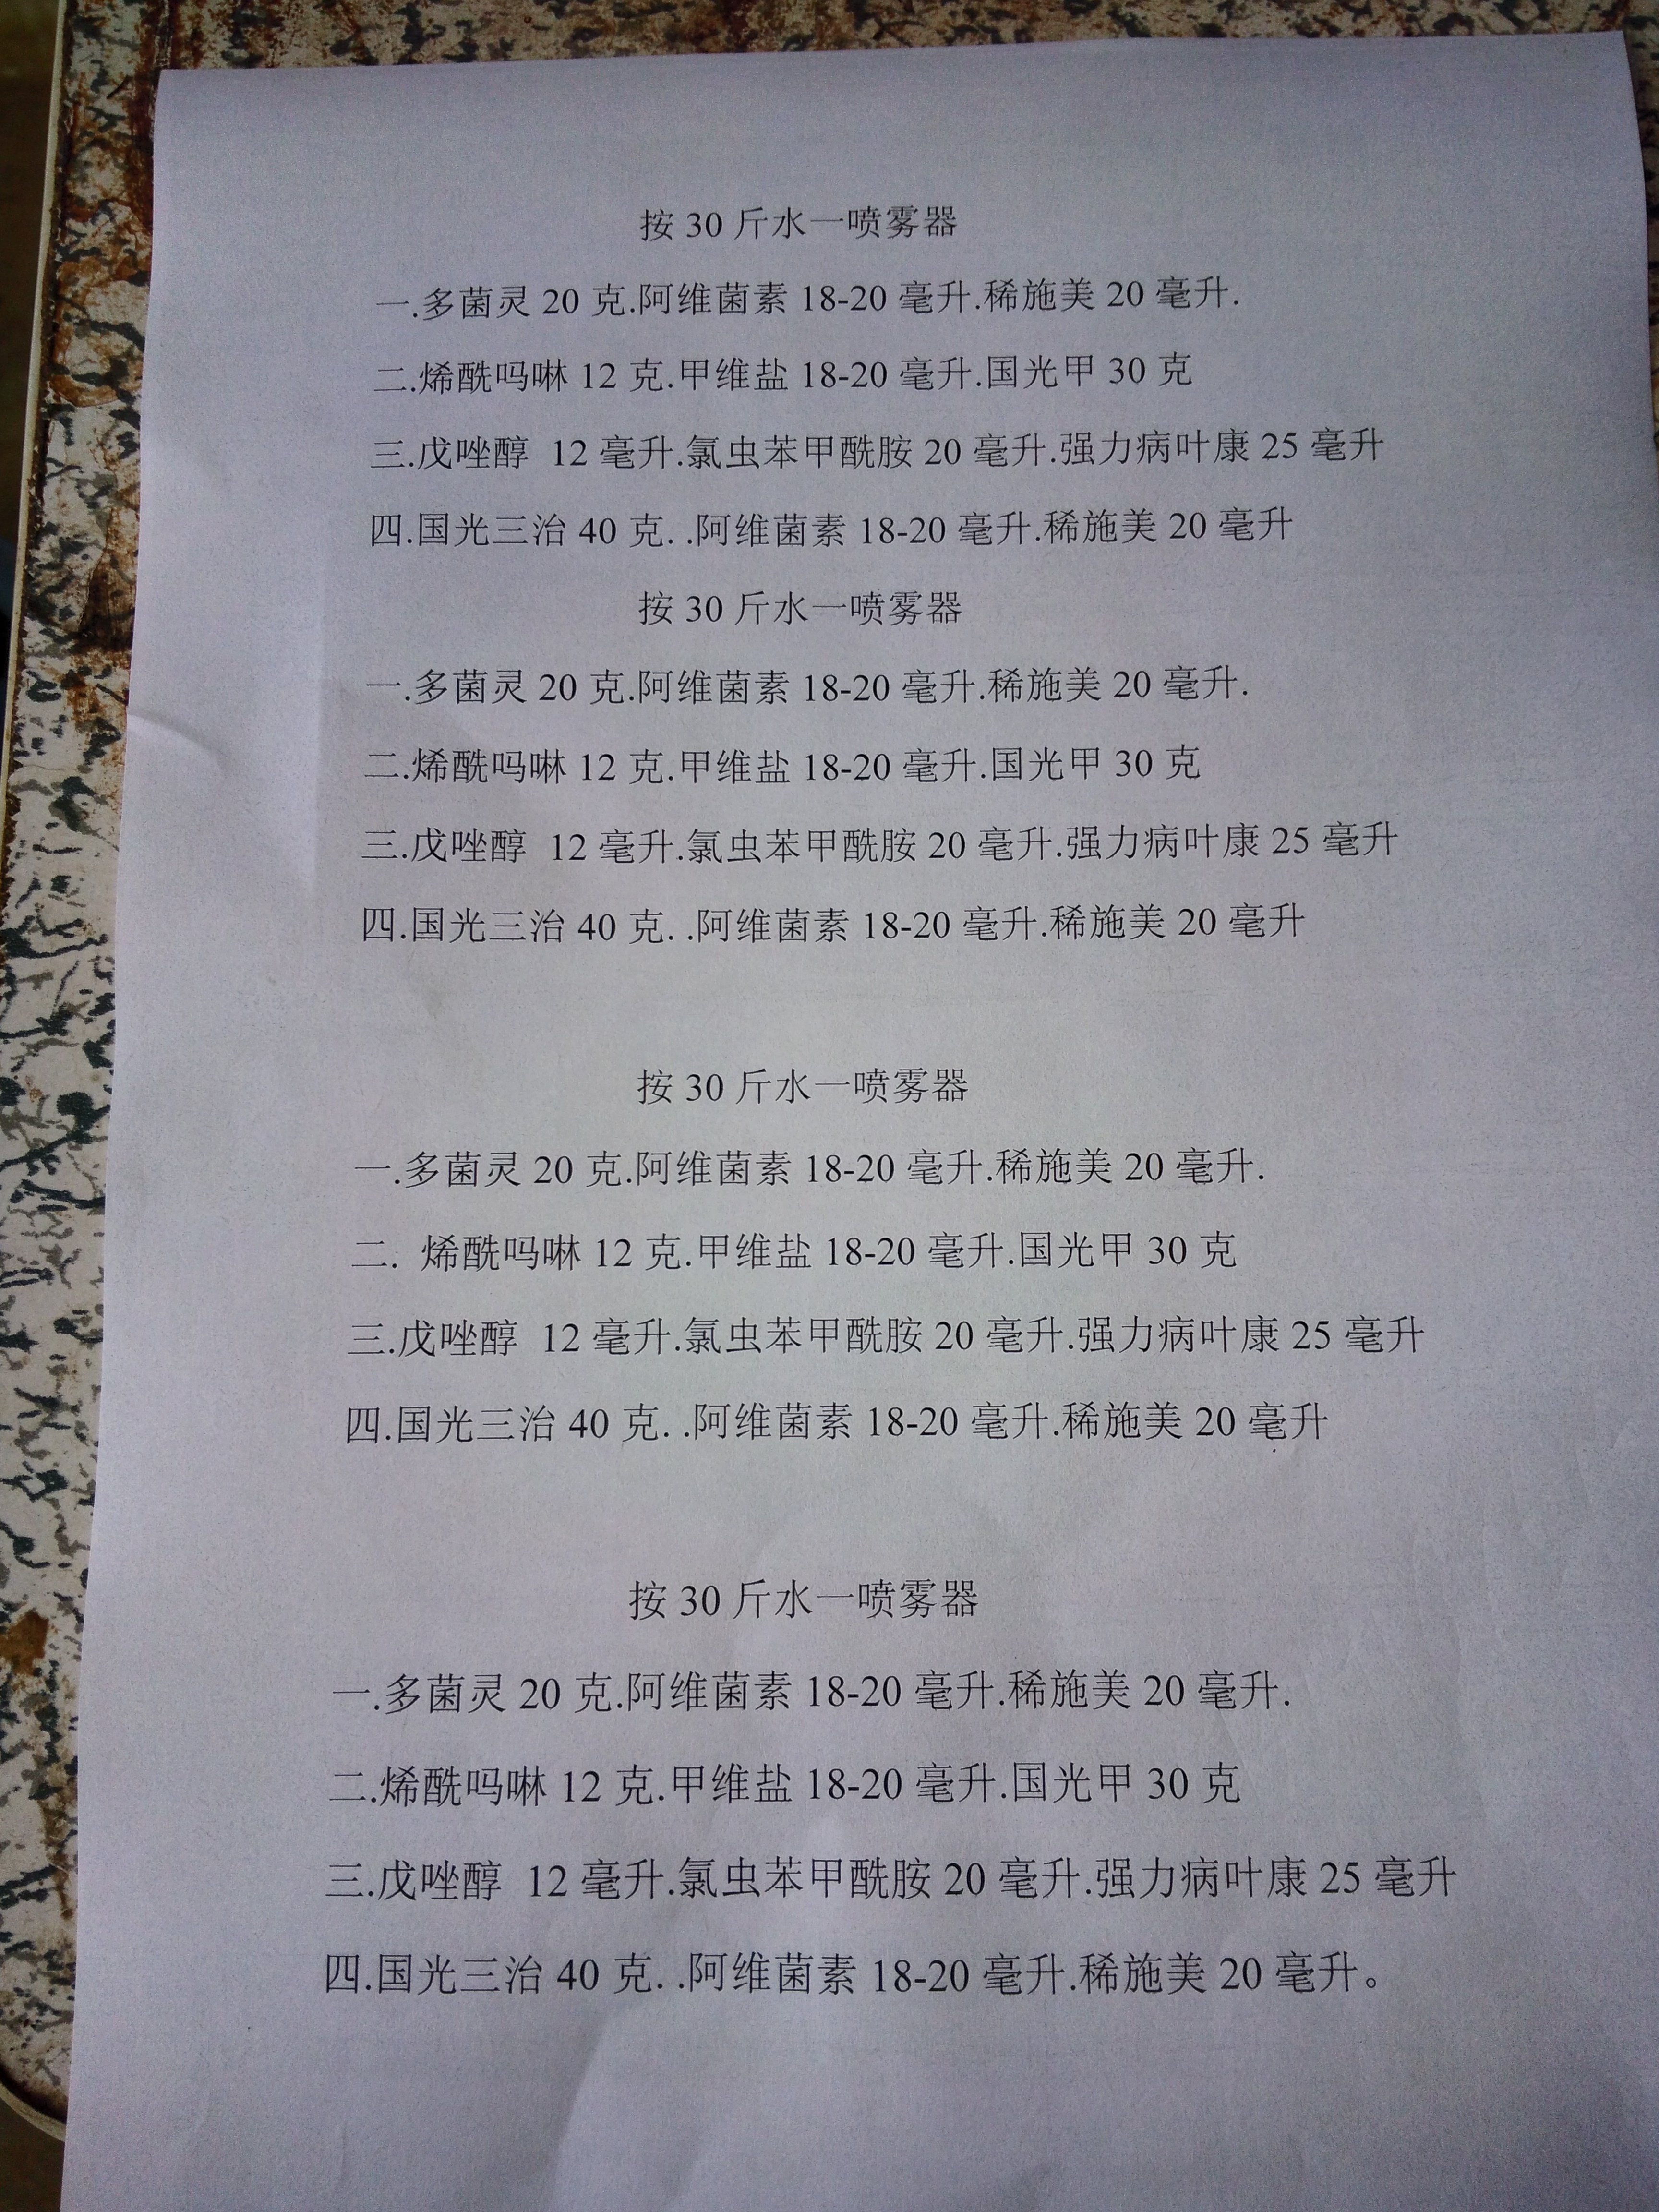 按 30 斤水一喷雾器
一.多菌灵 20 克.阿维菌素 18-20 毫升.稀施美 20 毫升.
二.烯酰吗啉 12 克.甲维盐 18-20 毫升.国光甲 30 克
三.戊唑醇 12 毫升.氯虫苯甲酰胺 20 毫升.强力病叶康 25 毫升
四.国光三治 40 克. .阿维菌素 18-20 毫升.稀施美 20 毫升
按 30 斤水一喷雾器
一.多菌灵 20 克.阿维菌素 18-20 毫升.稀施美 20 毫升.
二.烯酰吗啉 12 克.甲维盐 18-20 毫升.国光甲 30 克
三.戊唑醇 12 毫升.氯虫苯甲酰胺 20 毫升.强力病叶康 25 毫升
四.国光三治 40 克. .阿维菌素 18-20 毫升.稀施美 20 毫升
按 30 斤水一喷雾器
一.多菌灵 20 克.阿维菌素 18-20 毫升.稀施美 20 毫升.
二. 烯酰吗啉 12 克.甲维盐 18-20 毫升.国光甲 30 克
三.戊唑醇 12 毫升.氯虫苯甲酰胺 20 毫升.强力病叶康 25 毫升
四.国光三治 40 克. .阿维菌素 18-20 毫升.稀施美 20 毫升
按 30 斤水一喷雾器
一.多菌灵 20 克.阿维菌素 18-20 毫升.稀施美 20 毫升.
二.烯酰吗啉 12 克.甲维盐 18-20 毫升.国光甲 30 克
三.戊唑醇 12 毫升.氯虫苯甲酰胺 20 毫升.强力病叶康 25 毫升
四.国光三治 40 克. .阿维菌素 18-20 毫升.稀施美 20 毫升。